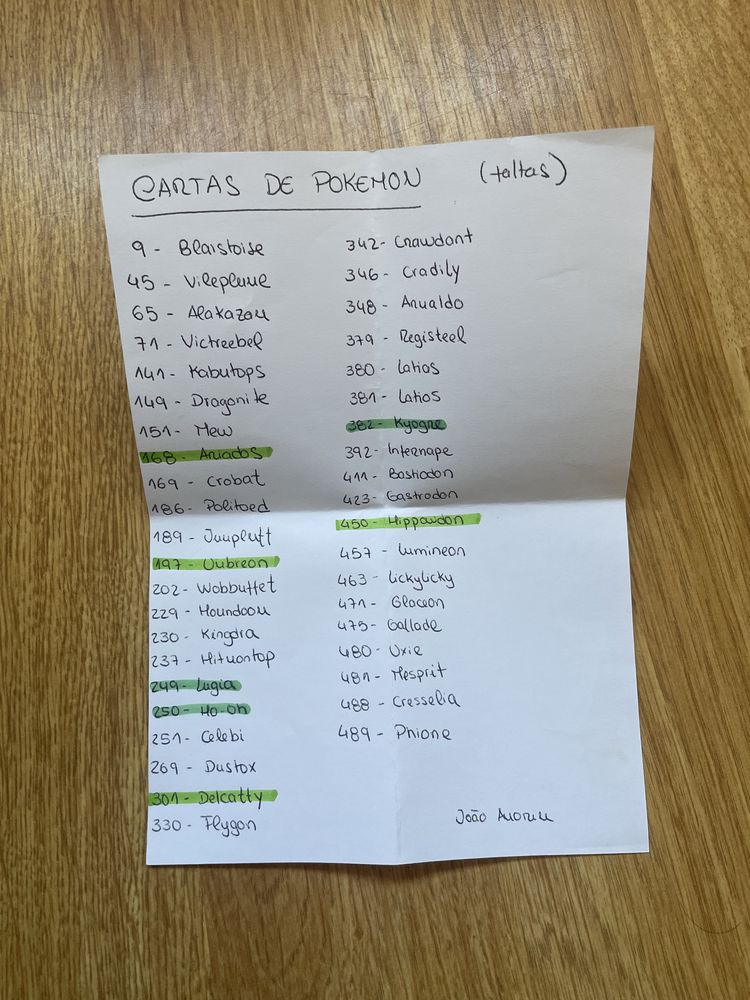 CARTAS DE POKEMON (faltas)
9 - Blaistoise
45 - Vileplume
65 - Alakazam
71 - Victreebel
141 - Kabutops
149 - Dragonite
151 - Mew
168 - Ariados
169 - Crobat
186 - Politoed
189 - Jumpluff
197 - Umbreon
202 - Wobbuffet
229 - Houndoom
230 - Kingdra
237 - Hitmontop
249 - Lugia
250 - Ho-oh
251 - Celebi
269 - Dustox
301 - Delcatty
330 - Flygon
342 - Crawdant
346 - Cradily
348 - Arualdo
379 - Registeel
380 - Latias
381 - Latios
382 - Kyogre
392 - Infernape
411 - Bastiodon
423 - Gastrodon
450 - Hippowdon
457 - Lumineon
463 - Lickylicky
471 - Glaceon
475 - Gallade
480 - Uxie
481 - Mesprit
488 - Cresselia
489 - Phione
João Amorim